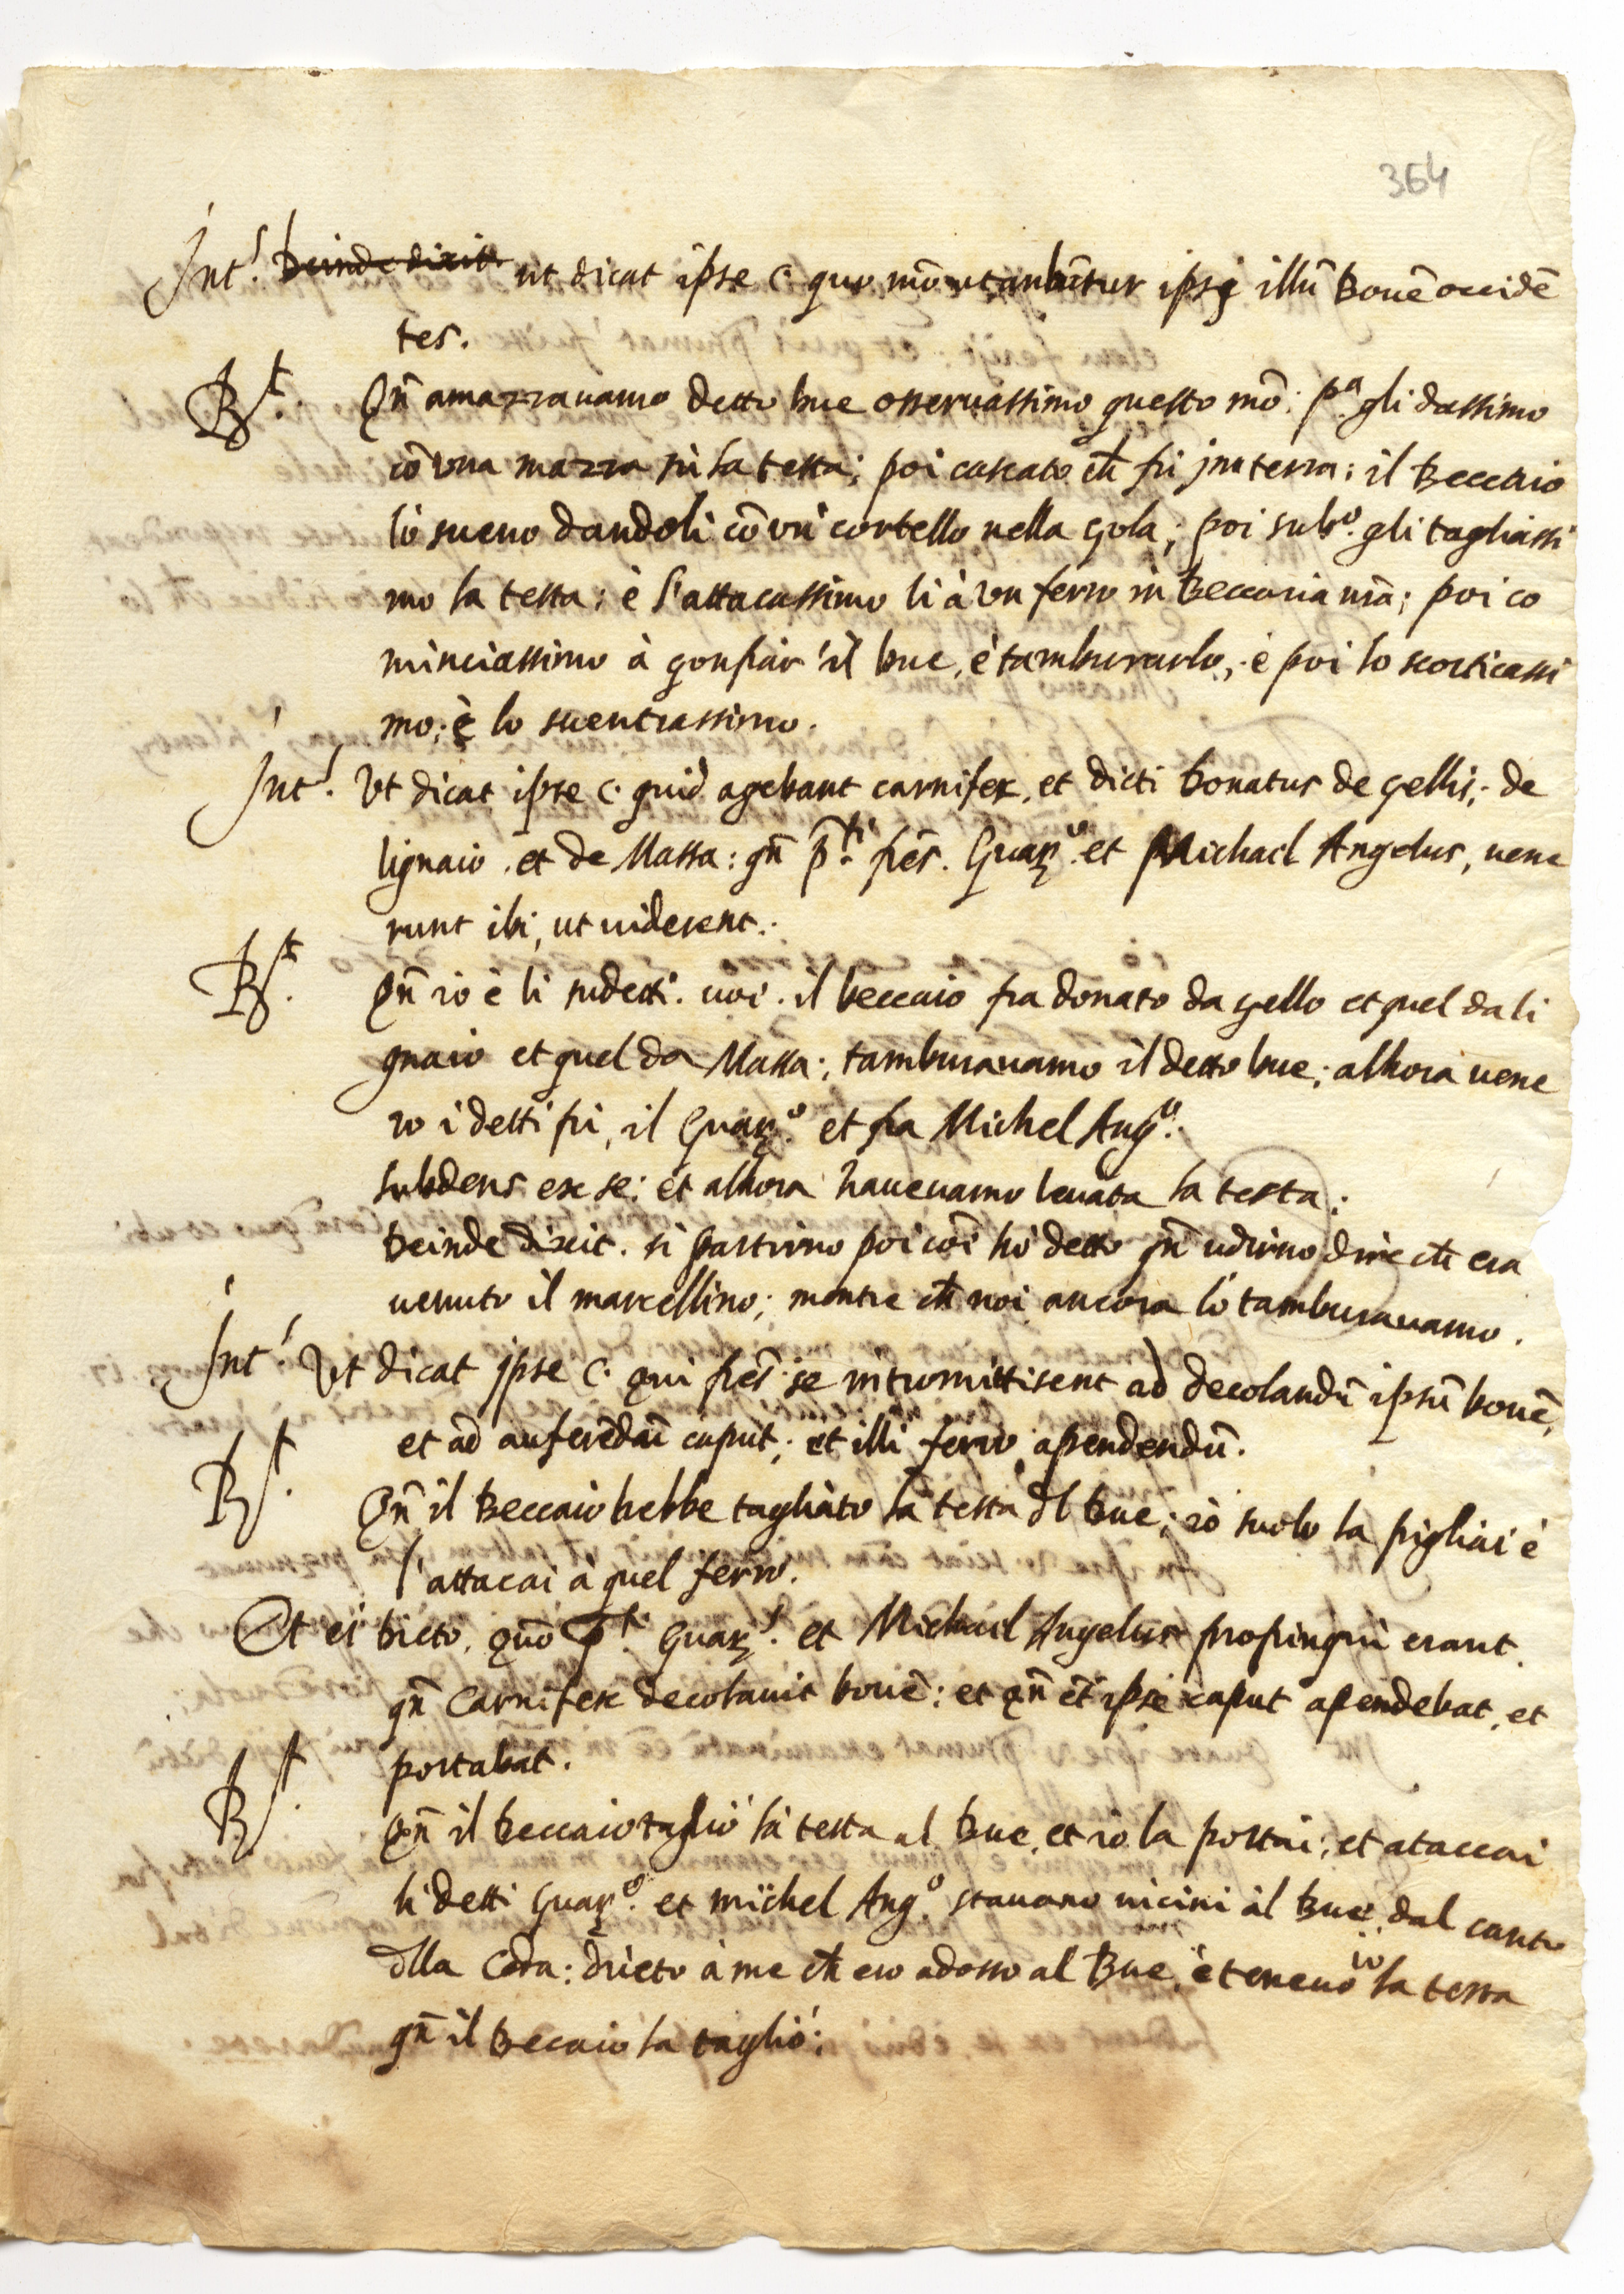 364
Int.s Deinde dixit ut dicat ipse c. quo mō utanbātur ipsi illū bouē occidē
tes.
R.t Qn̄ amazzauamo detto bue osseruassimo questo mō: p.a gli dassimo
cō una mazza sù la testa; poi cascato ch̄ fù in terra: il Beccaio
lo sueno dandoli cō un cortello nella gola; poi sub.o gli tagliassi
mo la testa; è l'attacassimo li à un ferro in beccaria nr̄a; poi co
minciassimo à gonfiar' il bue, è tamburarlo, è poi lo scorticassi
mo; è lo suentrassimo.
Int.s Ut dicat ipse c. quid agebant carnifex, et dicti Donatus de gellis, de
lignaio. et de Massa: qn̄ p̄.ti fr̄es. Guar.s et Michael Angelus, uene
runt ibi, ut uiderent.
R.t Qn̄ io è li sudetti. uoi. il beccaio fra donato da gello et quel da li
gnaio et quel da Massa; tamburauamo il detto bue; alhora uene
ro i detti fri, il Guar.o et fra Michel Ang.o.
subdens ex se: et alhora haueuamo leuata la testa:
Deinde dixit. si partirno poi coī hò detto qn̄ udirno dire ch̄ era
uenuto il marcellino; mentre ch̄ noi ancora lo tamburauamo.
Int.s Ut dicat ipse c. qui fr̄es se intromittisent ad decolandū ipsū bouē,
et ad auferēdū caput; et illi ferro apendendū.
R.t Qn̄ il Beccaio hebbe tagliàto la testa dl bue; iò suolo la pigliai è
l'attacai à quel ferro.
Et ei dicto. quō p̄.ti Guar.s et Michael Angelus propinqui erant.
qn̄ Carnifex decolauit bouē: et qn̄ et̄ ipse caput apendebat, et
portabat.
R.t Qn̄ il beccaio tagliò la testa al bue, et iò la portai; et ataccai
li detti Guar.o et michel Ang.o stauano uicini al bue, dal canto
dlla coda: drieto à me ch̄ ero adosso al Bue, è teneuo io la testa
qn̄ il becaio la tagliò: